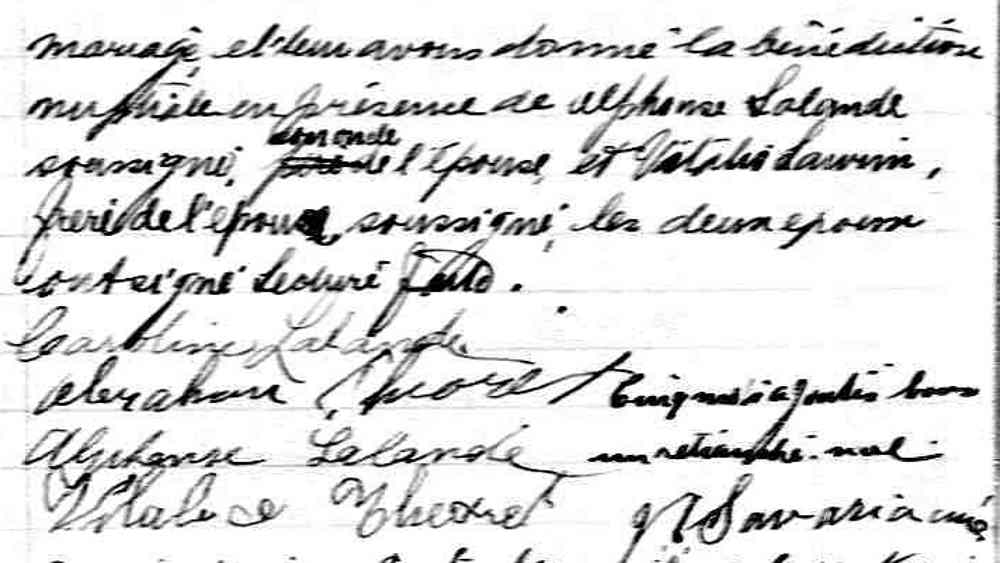 mariage, et leur avons donné la bénédiction
nuptiale en présence de Alphonse Lalande
soussigné, de l'épouse, et Vitalis
frère de l'époux, soussigné, les deux époux
ont signé Lecture faite.
Caroline Lalande
Abraham Theoret
mots ajoutés bons
Alphonse Lalande
un retranché nul
Vitalis Theoret
Savaria